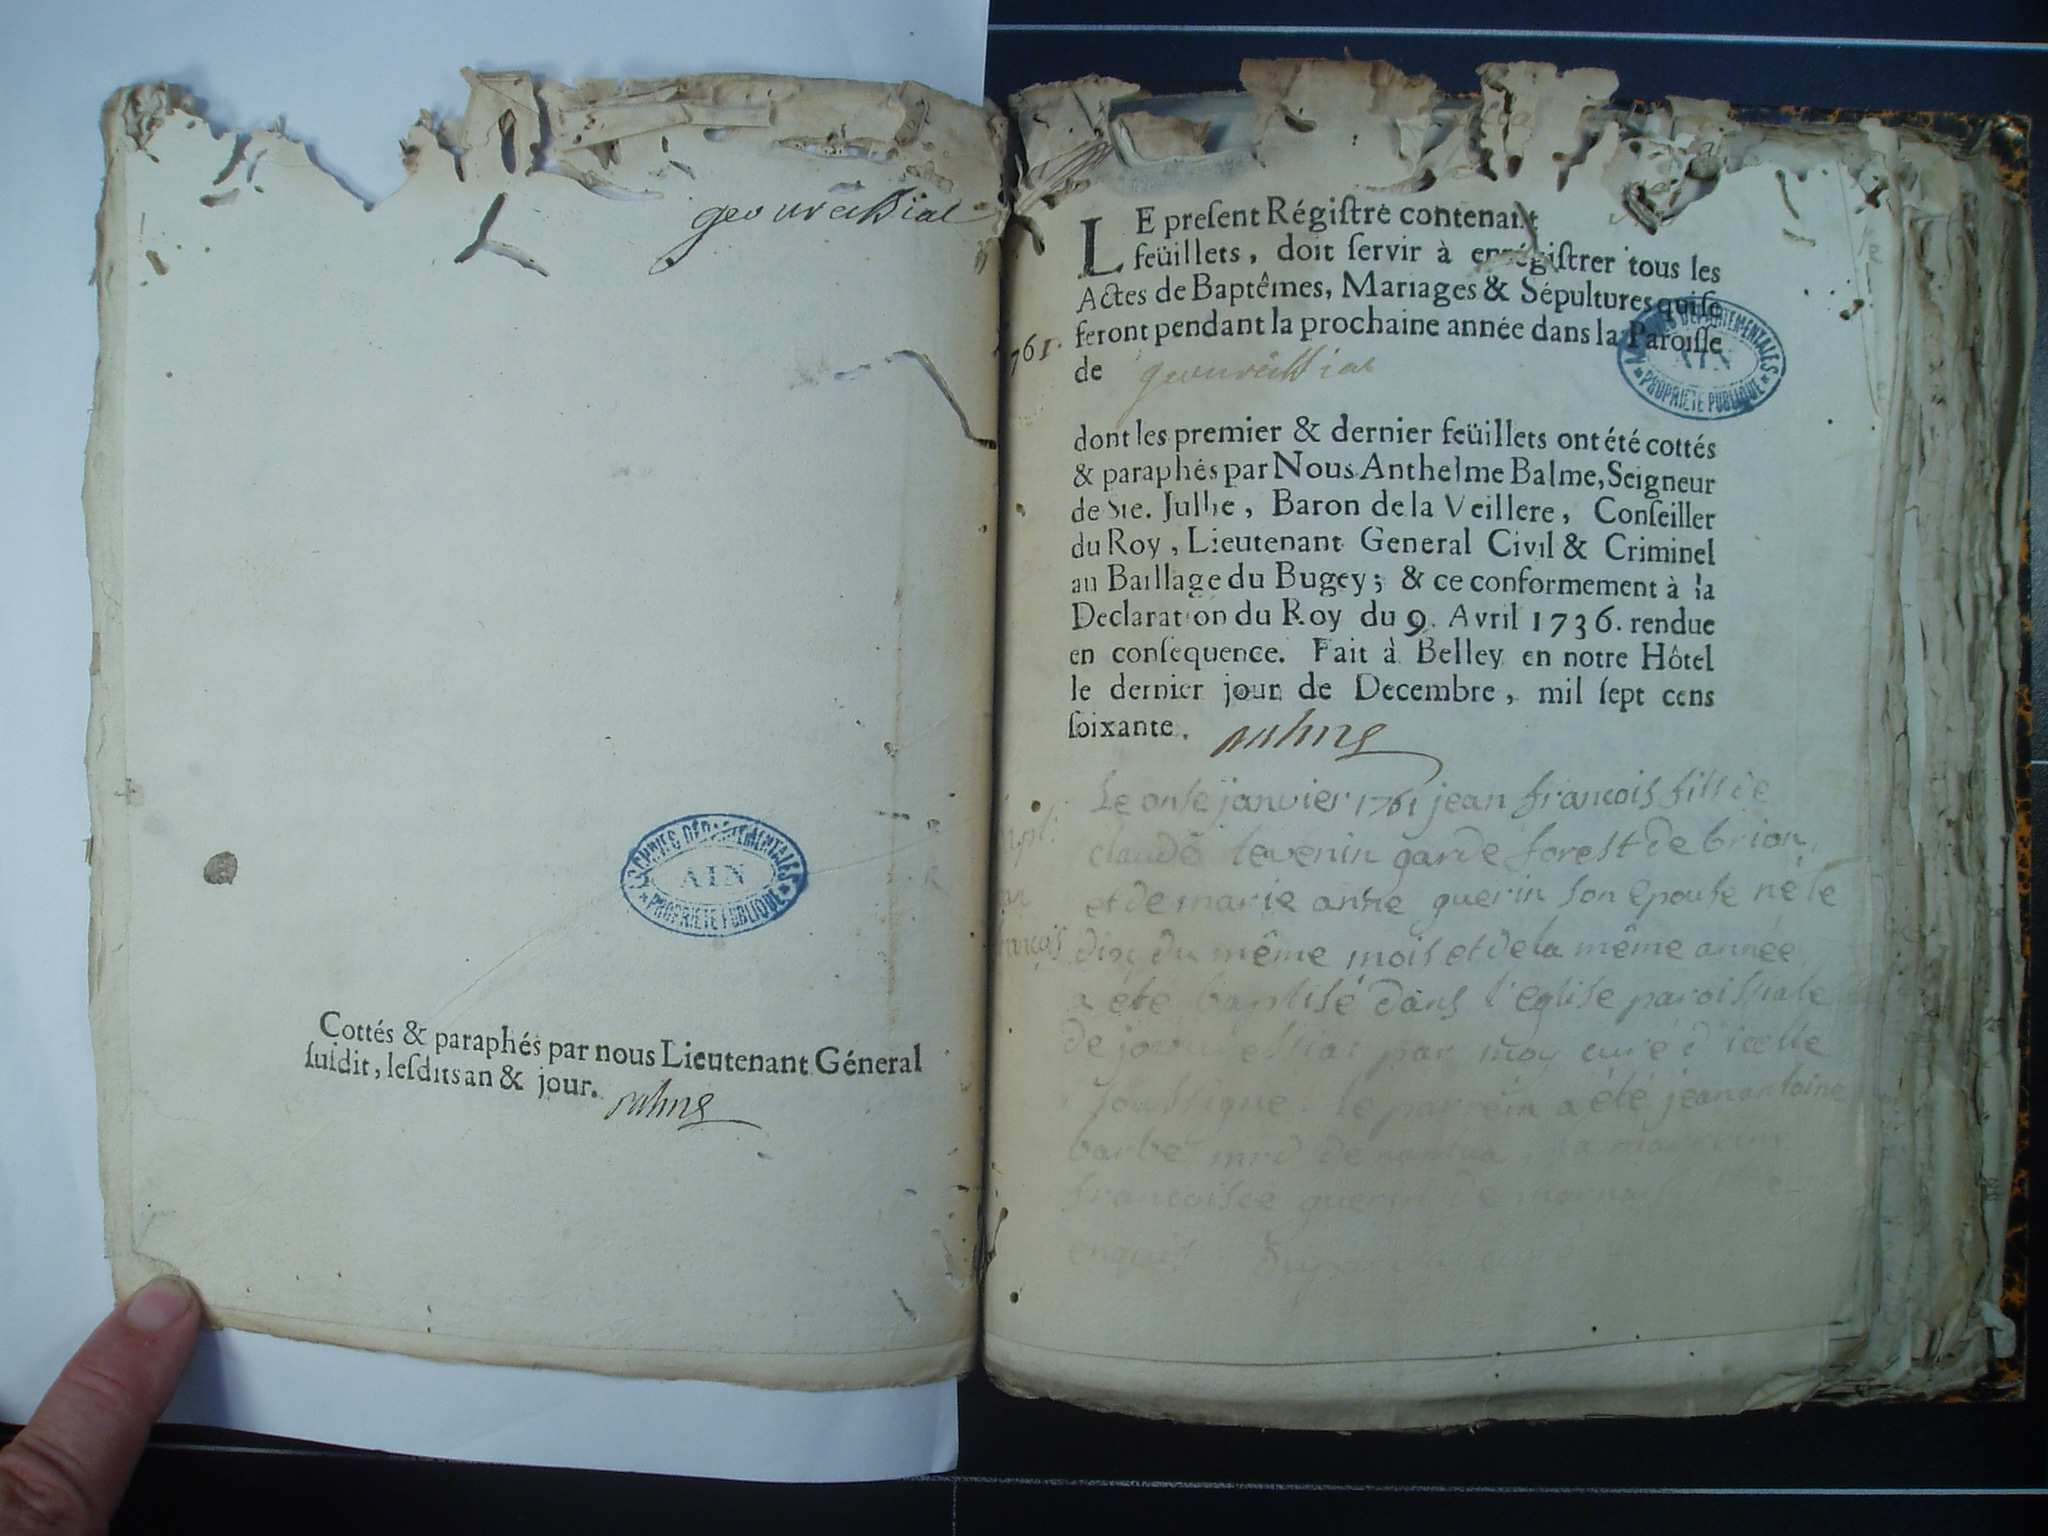 geovreissiat
ARCHIVES DÉPARTEMENTALES
AIN
PROPRIÉTÉ PUBLIQUE
Cottés & paraphés par nous Lieutenant Géneral
suſdit, leſdits an & jour.
LE preſent Régiſtre contenant
feüillets, doit ſervir à enrégiſtrer tous les
Actes de Baptêmes, Mariages & Sépultures qui ſe
feront pendant la prochaine année dans la Paroiſſe
761.
de geovreissiat
ARCHIVES DÉPARTEMENTALES
AIN
PROPRIÉTÉ PUBLIQUE
dont les premier & dernier feüillets ont été cottés
& paraphés par Nous Anthelme Balme, Seigneur
de Ste. Julhe, Baron de la Veillere, Conſeiller
du Roy, Lieutenant General Civil & Criminel
au Baillage du Bugey; & ce conformement à la
Declaration du Roy du 9. Avril 1736. rendue
en conſequence. Fait à Belley en notre Hôtel
le dernier jour de Decembre, mil ſept cens
ſoixante.
Le onse janvier 1761 jean francois fils de
claude levenin garde forest de brion,
et de marie anne guerin son epouse né le
françois
dix du même mois et de la même année
a été baptisé dans l'eglise paroissiale
de par moy curé d'icelle
le parrein a été jean antoine
barbe de nantua, la
francoise guerin de